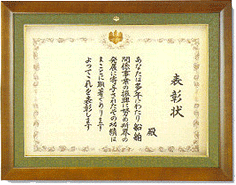 表彰状
殿
あなたは多年にわたり船舶
関係事業の振興に努め斯界の
発展に寄与されたその功績は
まことに顕著であります
よってこれを表彰します